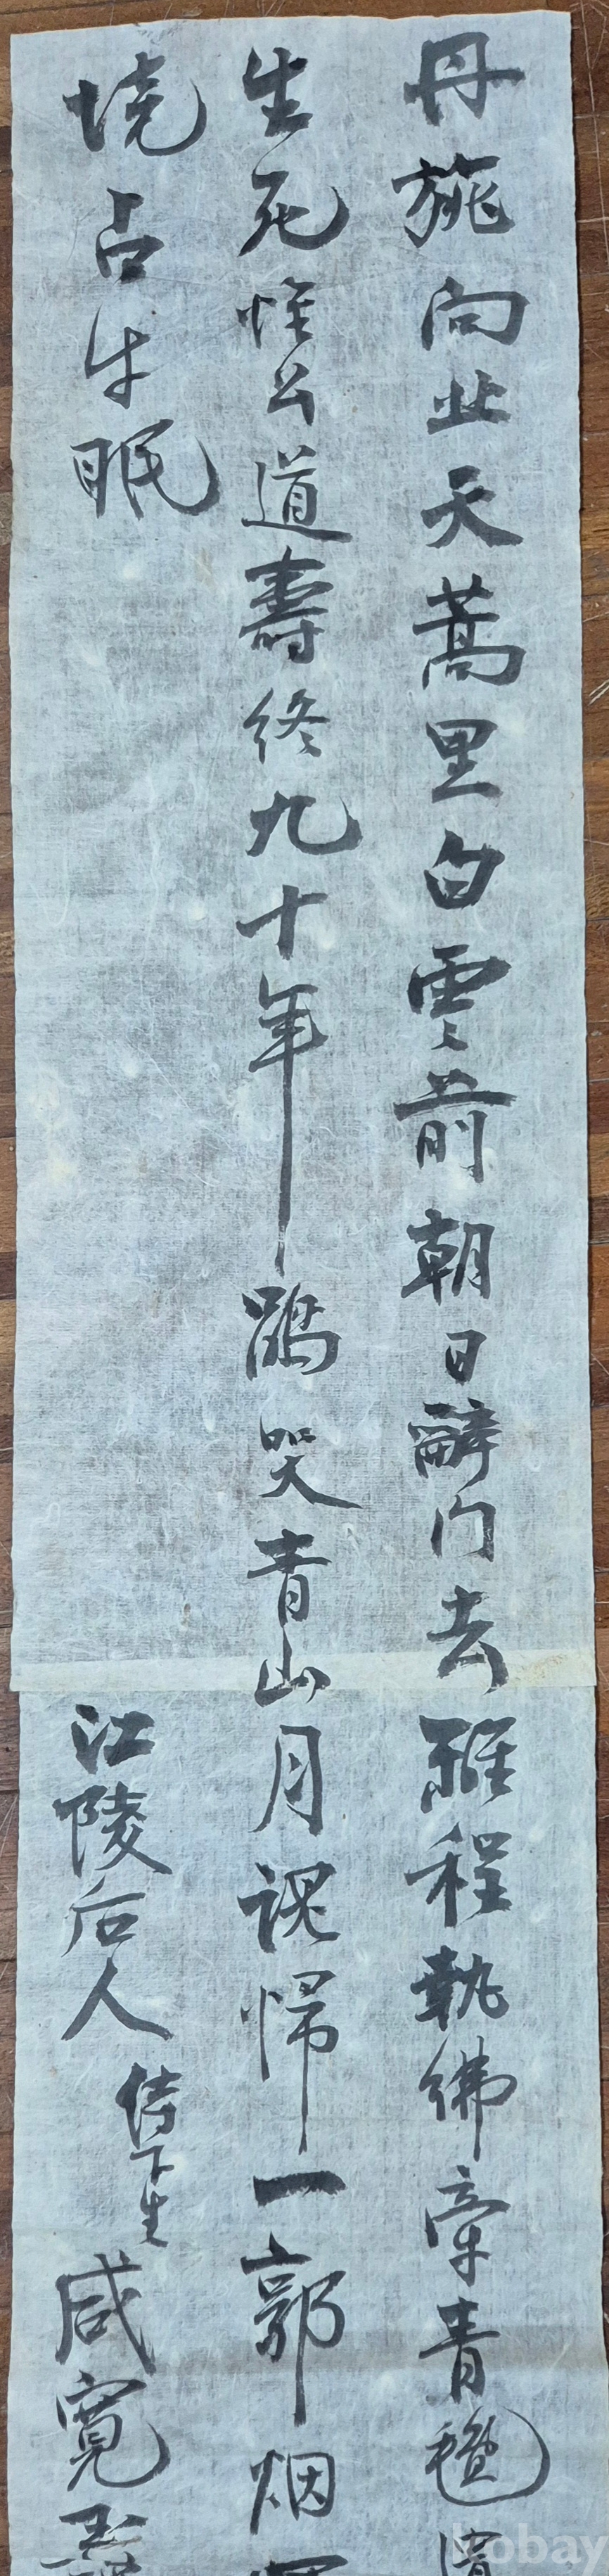 丹旐向北天蒿里白雲前朝日辭門去雅程執紼牽青氊
生死惟公道壽終九十年鵑哭青山月魂帰一郭烟
境占牛眠
江陵后人
侍下生
咸寬
kobay